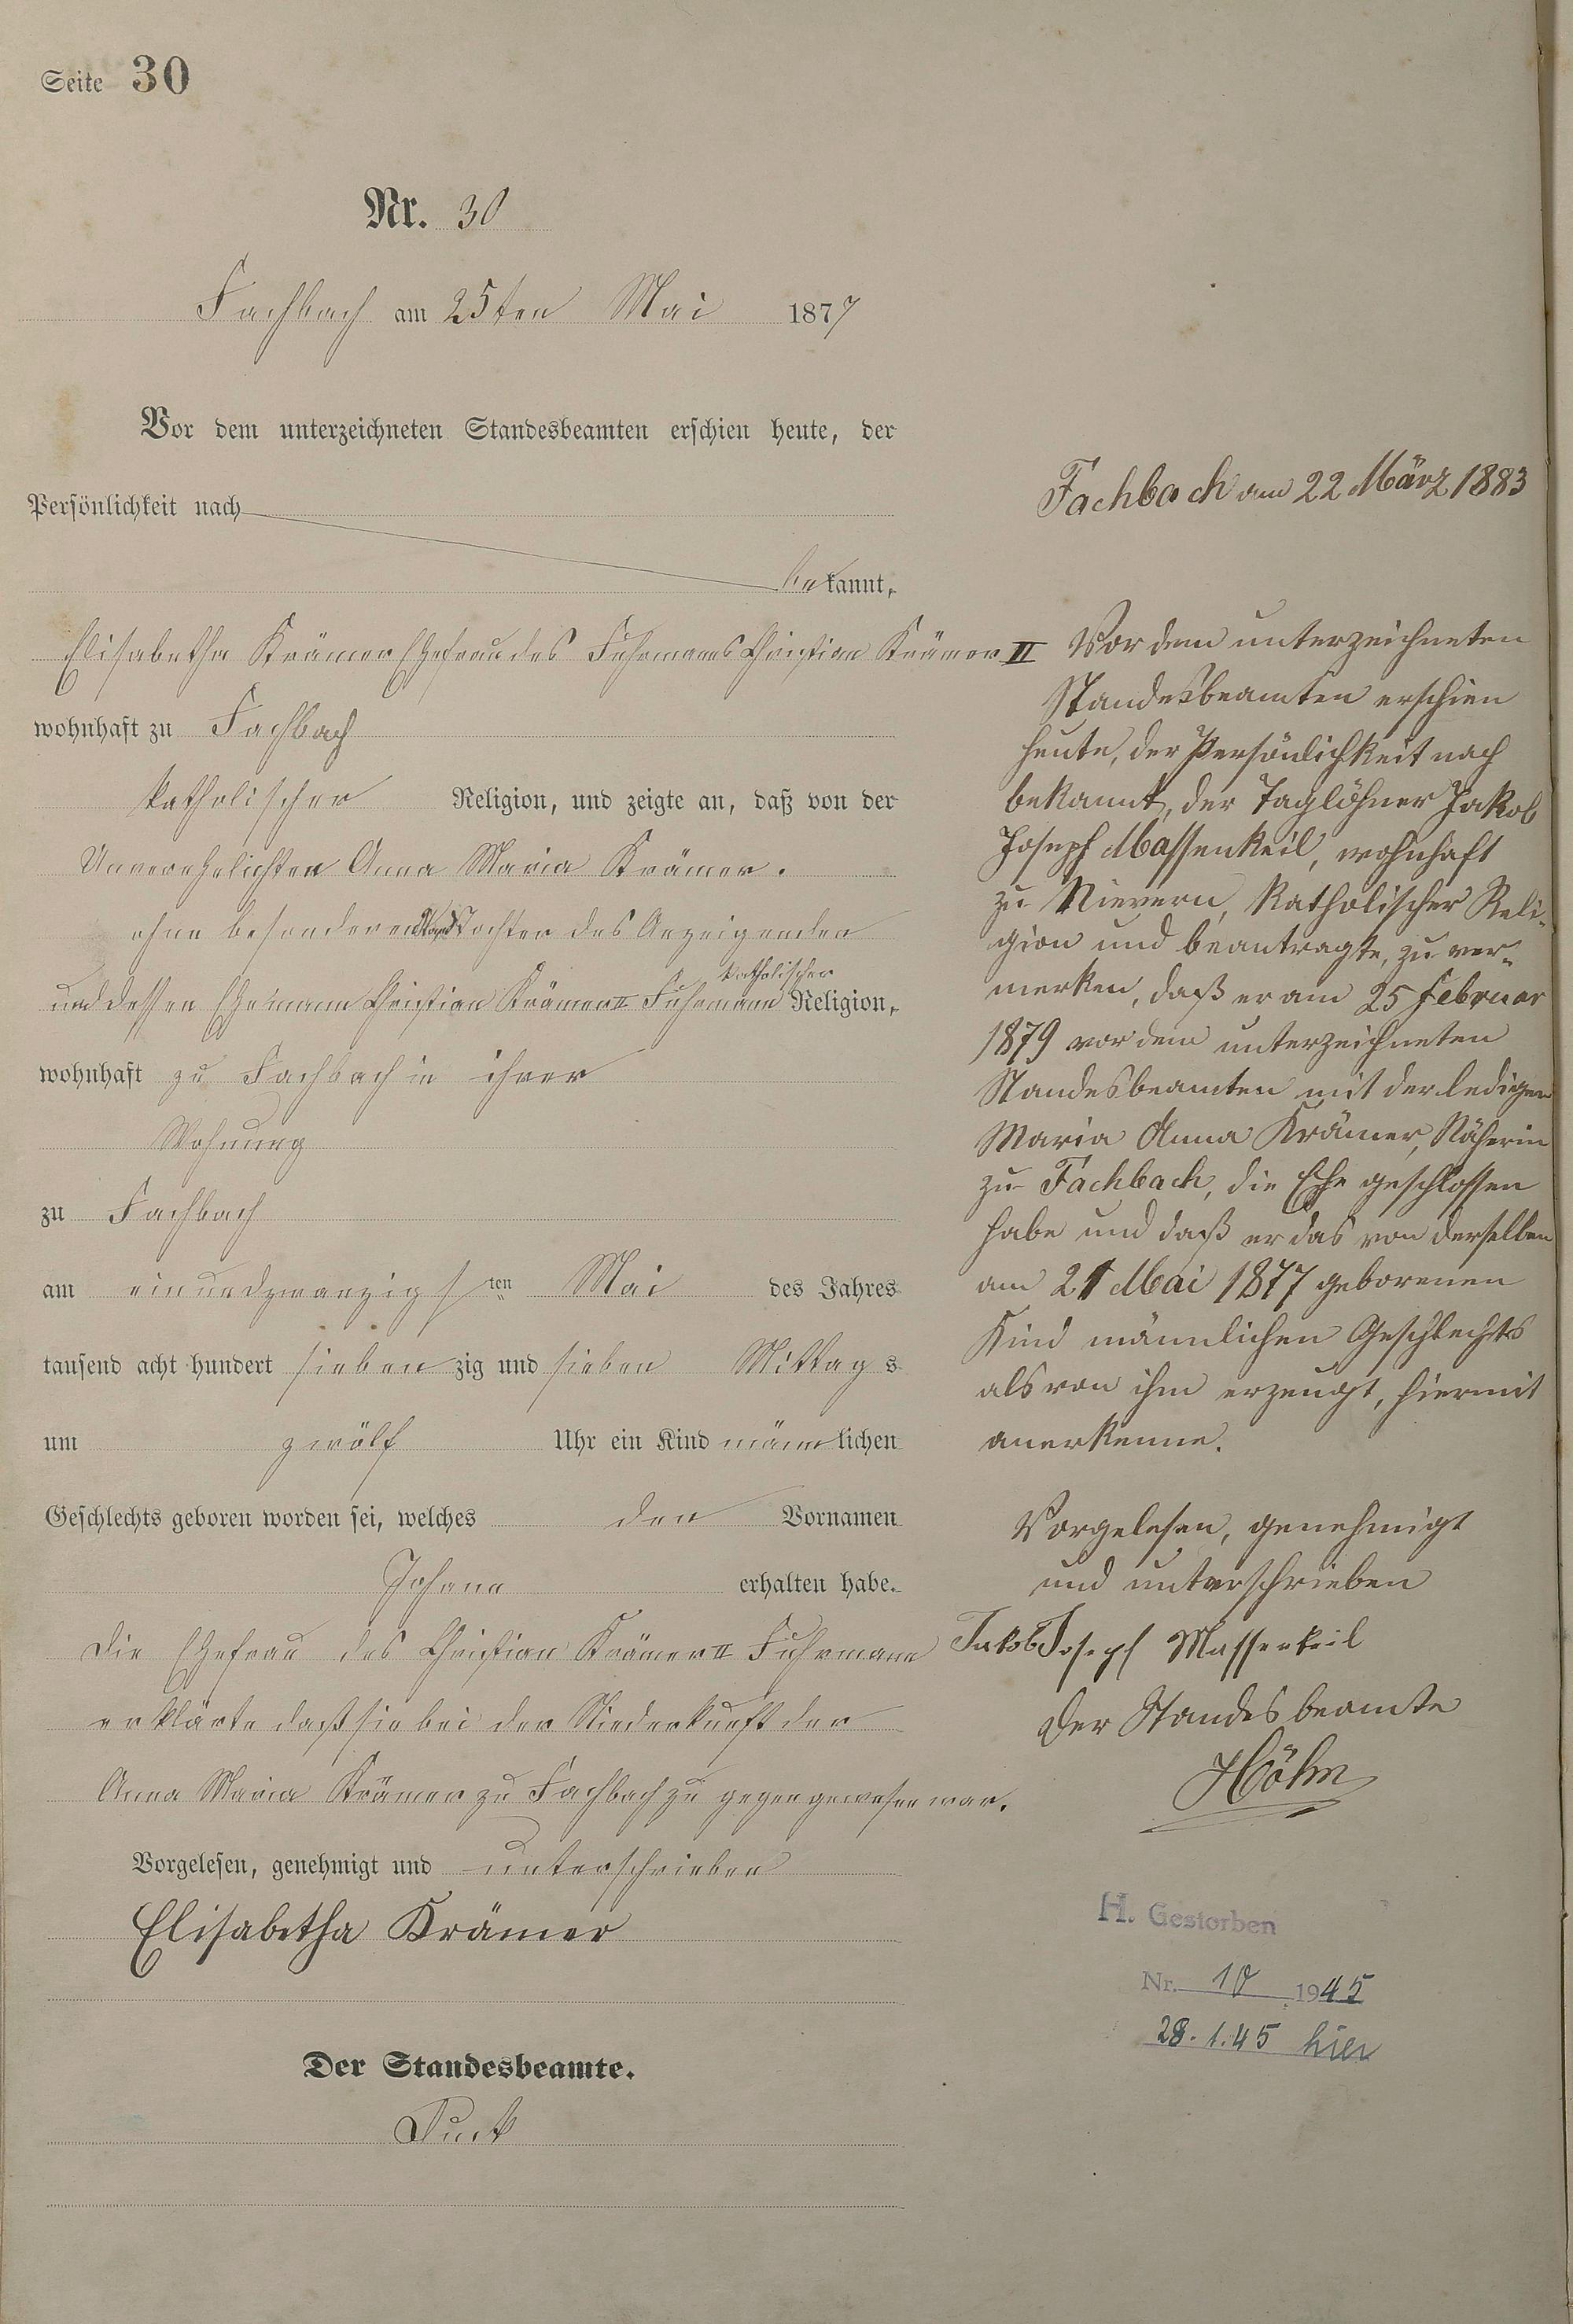 Seite 30
Nr. 30
Fachbach am 25ten Mai 1877
Vor dem unterzeichneten Standesbeamten erschien heute, der
Persönlichkeit nach
bekannt,
Elisabetha Krämer Ehefrau des Fuhrmanns Christian Krämer II
wohnhaft zu Fachbach
katholischer Religion, und zeigte an, daß von der
Unverehelichten Anna Maria Krämer.
ohne besonderen Stand Tochter des Anzeigenden
katholischer
und dessen Ehemann Christian Krämer II Fuhrmann Religion,
wohnhaft zu Fachbach in ihrer
Wohnung
zu Fachbach
am einundzwanzigsten Mai des Jahres
tausend acht hundert siebenzig und sieben Mittags
um zwölf Uhr ein Kind männlichen
Geschlechts geboren worden sei, welches den Vornamen
Johann erhalten habe.
Die Ehefrau des Christian Krämer II Fuhrmann
erklärte daß sie bei der Niederkunft der
Anna Maria Krämer zu Fachbach zu gegen gewesen war.
Vorgelesen, genehmigt und unterschrieben
Elisabetha Krämer
Der Standesbeamte.
Fachbach am 22 März 1883
Vor dem unterzeichneten
Standesbeamten erschien
heute, der Persönlichkeit nach
bekannt, der Taglöhner Jakob
Joseph Massenkeil, wohnhaft
zu Nievern, Katholischer Reli-
gion und beantragte, zu ver-
merken, daß er am 25 Februar
1879 vor dem unterzeichneten
Standesbeamten mit der ledigen
Maria Anna Krämer, Näherin
zu Fachbach, die Ehe geschlossen
habe und daß er das von derselben
am 21 Mai 1877 geborenen
Kind männlichen Geschlechts
als von ihm erzeugt, hiermit
anerkenne.
Vorgelesen, genehmigt
und unterschrieben
Jakob Joseph Massenkeil
Der Standesbeamte
Höhn
H. Gestorben
Nr. 10 1945
28.1.45 hier